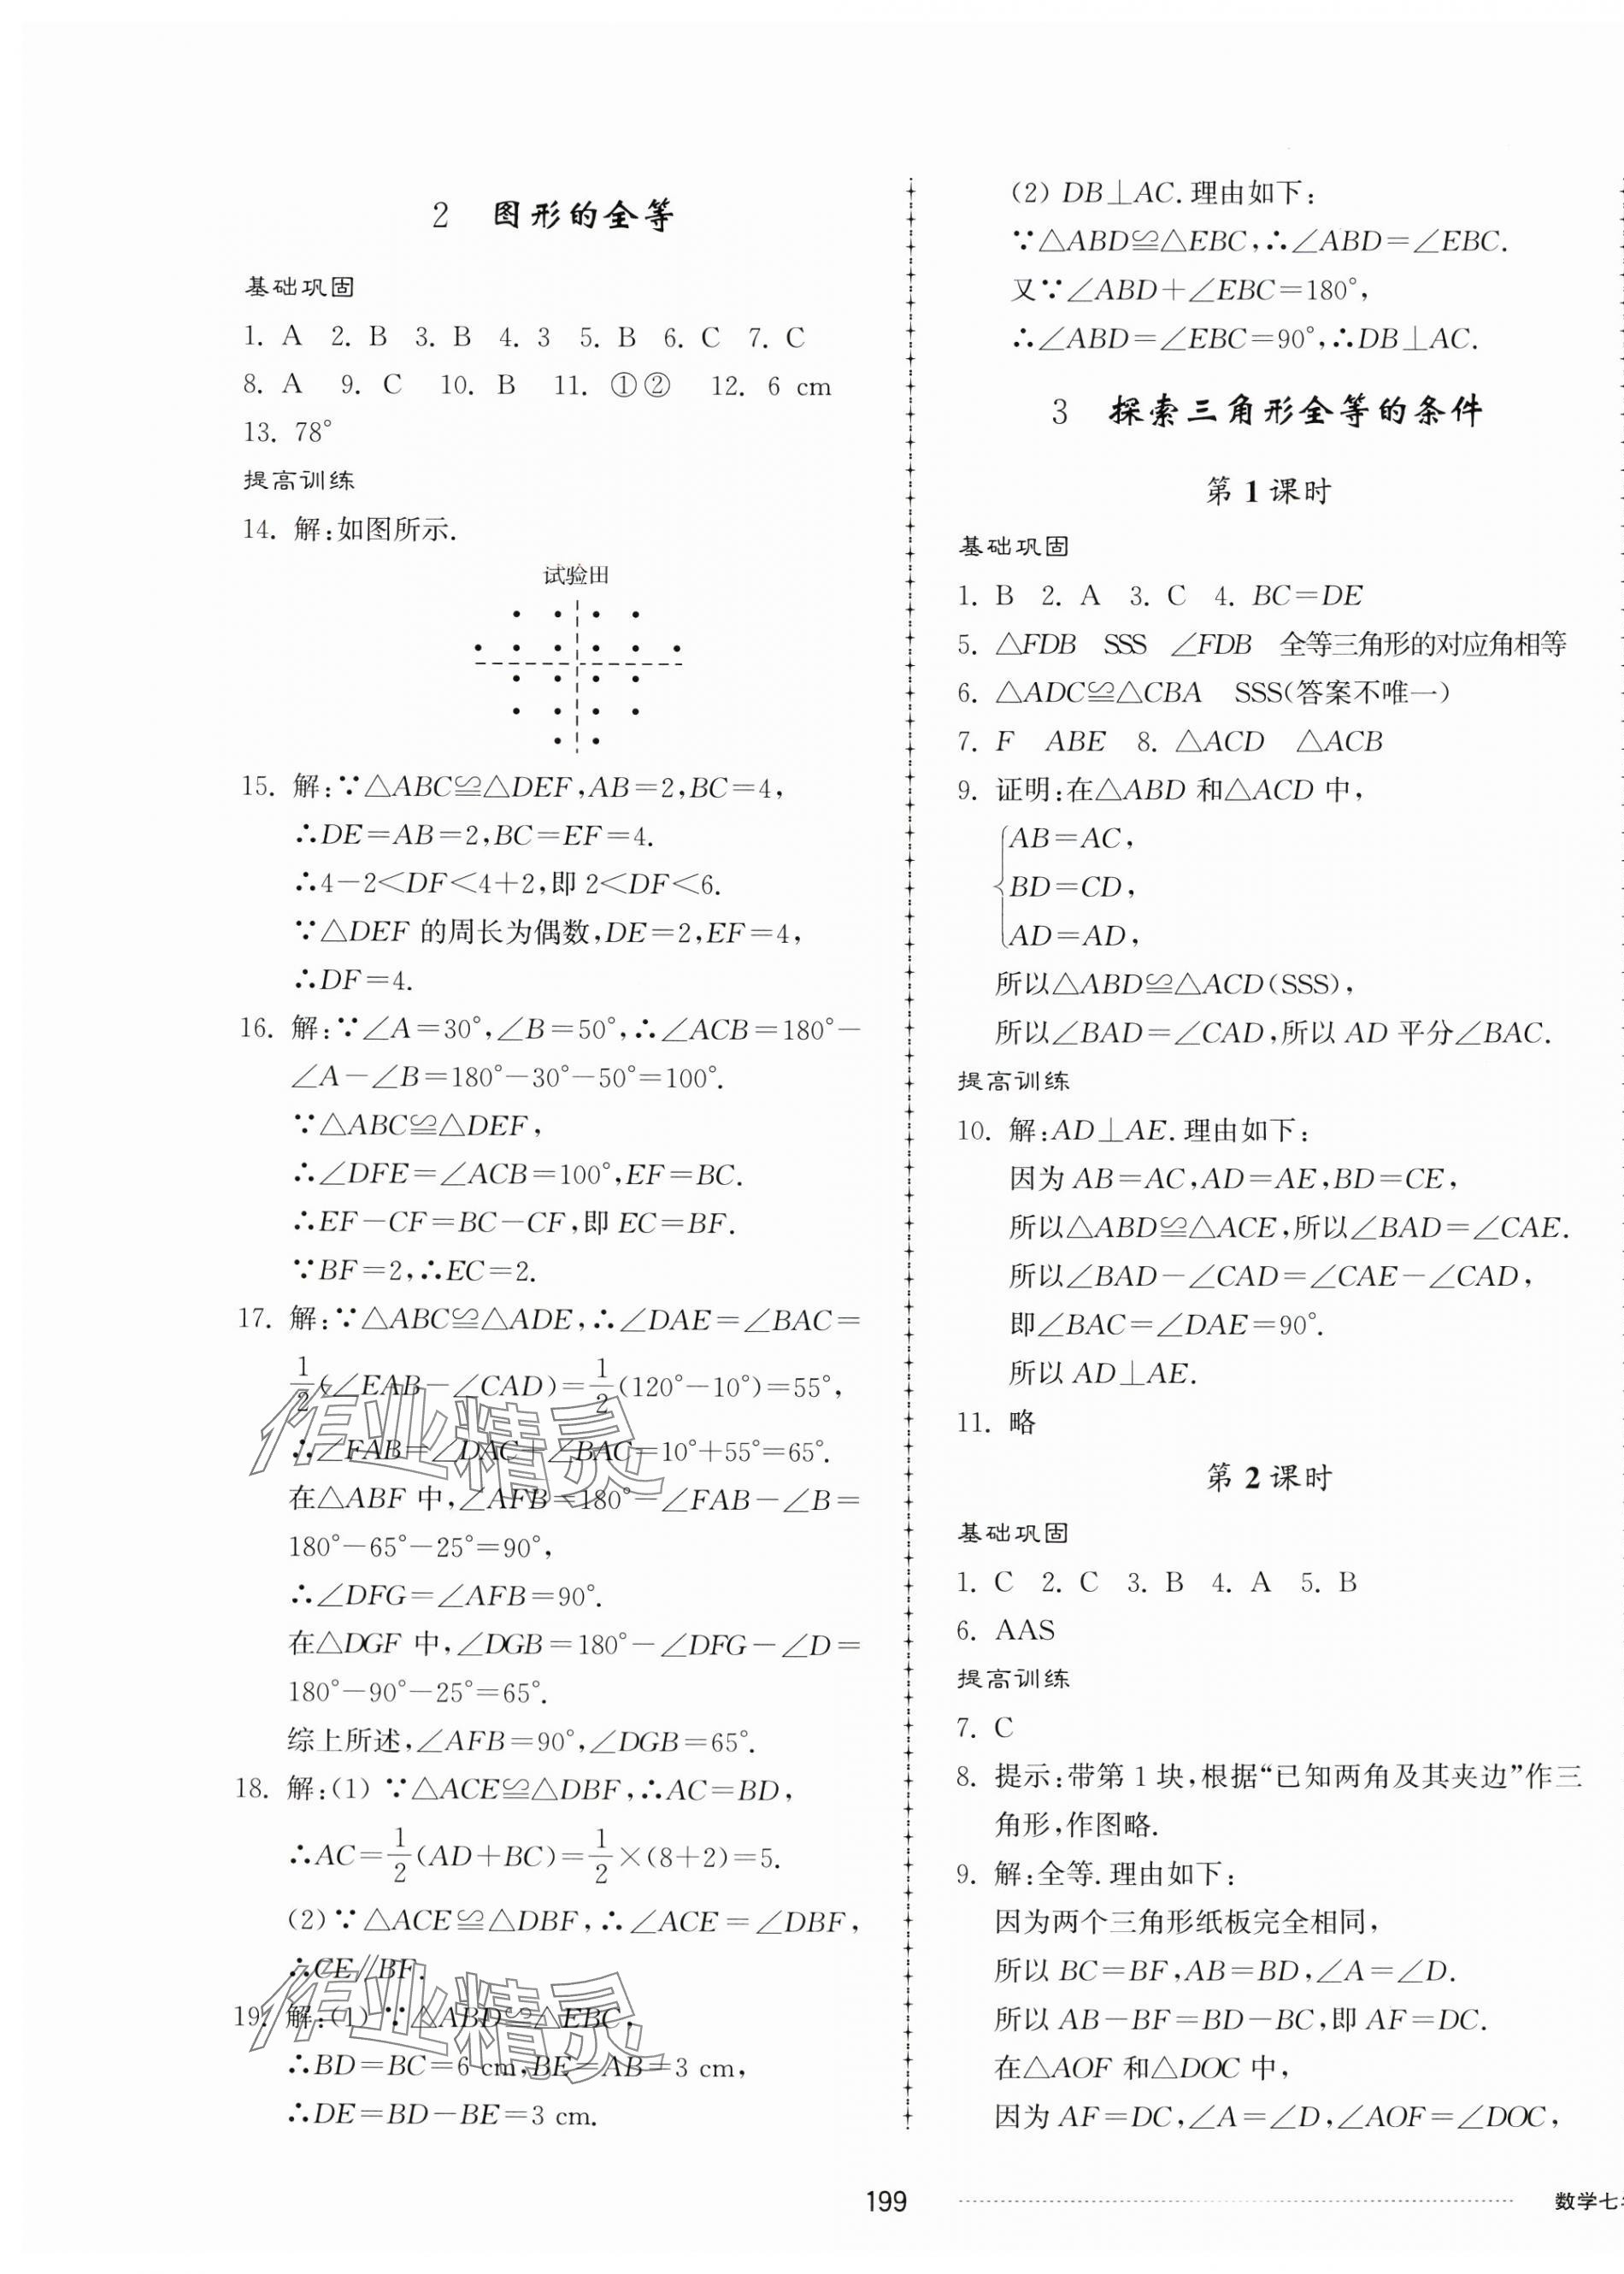 2 图形的全等
基础巩固
1. A 2. B 3. B 4. 3 5. B 6. C 7. C
8. A 9. C 10. B 11. ①② 12. 6 cm
13. 78°
提高训练
14. 解:如图所示.
试验田
15. 解:∵△ABC≌△DEF,AB=2,BC=4,
∴DE=AB=2,BC=EF=4.
∴4-2<DF<4+2,即 2<DF<6.
∵△DEF 的周长为偶数,DE=2,EF=4,
∴DF=4.
16. 解:∵∠A=30°,∠B=50°,∴∠ACB=180°-
∠A-∠B=180°-30°-50°=100°.
∵△ABC≌△DEF,
∴∠DFE=∠ACB=100°,EF=BC.
∴EF-CF=BC-CF,即 EC=BF.
∵BF=2,∴EC=2.
17. 解:∵△ABC≌△ADE,∴∠DAE=∠BAC=
1/2(∠EAB-∠CAD)=1/2(120°-10°)=55°,
∴∠FAB=∠DAC+∠BAC=10°+55°=65°.
在△ABF 中,∠AFB=180°-∠FAB-∠B=
180°-65°-25°=90°,
∴∠DFG=∠AFB=90°.
在△DGF 中,∠DGB=180°-∠DFG-∠D=
180°-90°-25°=65°.
综上所述,∠AFB=90°,∠DGB=65°.
18. 解:(1) ∵△ACE≌△DBF,∴AC=BD,
∴AC=1/2(AD+BC)=1/2×(8+2)=5.
(2)∵△ACE≌△DBF,∴∠ACE=∠DBF,
∴CE∥BF.
19. 解:(1) ∵△ABD≌△EBC,
∴BD=BC=6 cm,BE=AB=3 cm,
∴DE=BD-BE=3 cm.
(2) DB⊥AC.理由如下:
∵△ABD≌△EBC,∴∠ABD=∠EBC.
又∵∠ABD+∠EBC=180°,
∴∠ABD=∠EBC=90°,∴DB⊥AC.
3 探索三角形全等的条件
第 1 课时
基础巩固
1. B 2. A 3. C 4. BC=DE
5. △FDB SSS ∠FDB 全等三角形的对应角相等
6. △ADC≌△CBA SSS(答案不唯一)
7. F ABE 8. △ACD △ACB
9. 证明:在△ABD 和△ACD 中,
AB=AC,
BD=CD,
AD=AD,
所以△ABD≌△ACD(SSS),
所以∠BAD=∠CAD,所以 AD 平分∠BAC.
提高训练
10. 解:AD⊥AE.理由如下:
因为 AB=AC,AD=AE,BD=CE,
所以△ABD≌△ACE,所以∠BAD=∠CAE.
所以∠BAD-∠CAD=∠CAE-∠CAD,
即∠BAC=∠DAE=90°.
所以 AD⊥AE.
11. 略
第 2 课时
基础巩固
1. C 2. C 3. B 4. A 5. B
6. AAS
提高训练
7. C
8. 提示:带第 1 块,根据“已知两角及其夹边”作三
角形,作图略.
9. 解:全等.理由如下:
因为两个三角形纸板完全相同,
所以 BC=BF,AB=BD,∠A=∠D.
所以 AB-BF=BD-BC,即 AF=DC.
在△AOF 和△DOC 中,
因为 AF=DC,∠A=∠D,∠AOF=∠DOC,
199
数学七
作业精灵
作业精灵